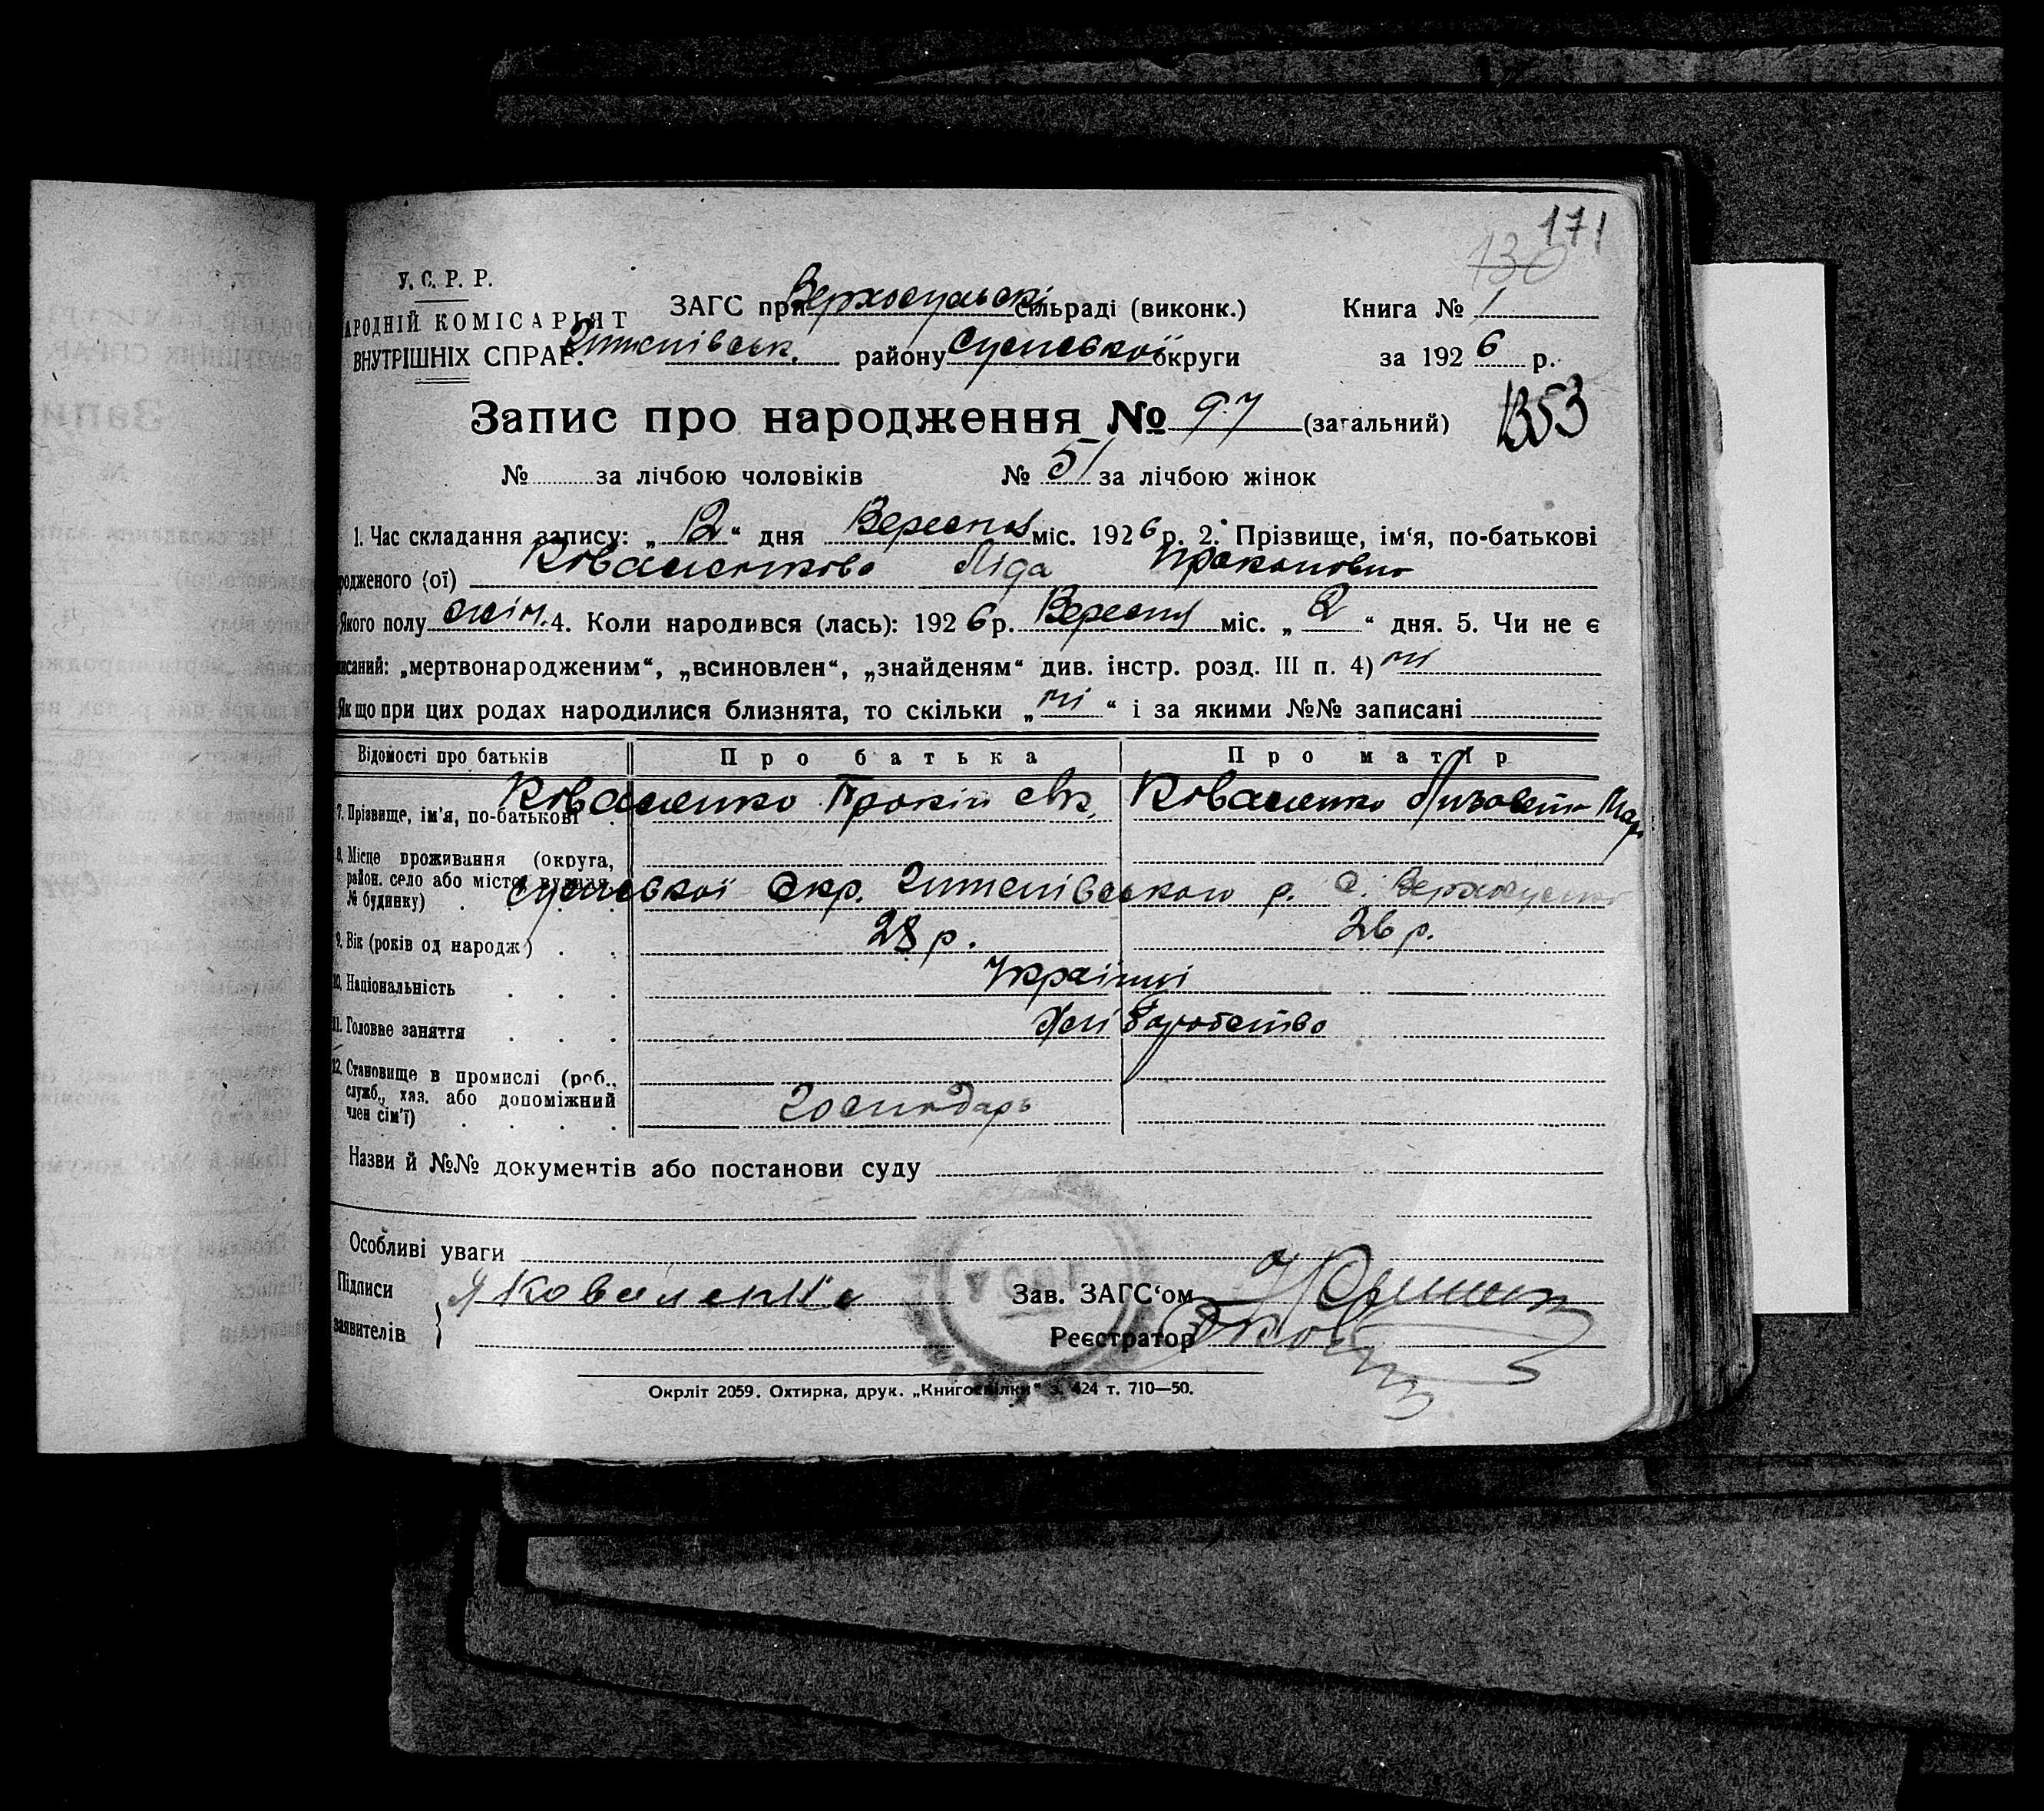 171
130
У. С. Р. Р.
АРОДНІЙ КОМІСАРІЯТ
ВНУТРІШНІХ СПРАВ.
ЗАГС при Верхосульські сільраді (виконк.) Книга № 1
Штепівськ. району Сумської округи за 1926 р.
Запис про народження № 97 (загальний) 1353
№ за лічбою чоловіків № 51 за лічбою жінок
1. Час складання запису: „12“ дня Вересня міс. 1926 р. 2. Прізвище, ім‘я, по-батькові
родженого (ої) Коваленкова Ліда Прокоповна
Якого полу жін. 4. Коли народився (лась): 1926 р. Вересня міс. „2“ дня. 5. Чи не є
писаний: „мертвонародженим“, „всиновлен“, „знайденям“ див. інстр. розд. III п. 4) ні
Якщо при цих родах народилися близнята, то скільки „ні“ і за якими №№ записані
Відомості про батьків Про батька Про матір
7. Прізвище, ім'я, по-батькові Коваленко Прокіп Коваленко Лизовета Мар.
8. Місце проживання (округа, район, село або місто, вулиця, № будинку) Сумської Окр. Штепівського р. С. Верхосулка
9. Вік (років од народж) 28 р. 26 р.
10. Національність Українці
11. Головне заняття Хліборобство
12. Становище в промислі (роб., служб., хяз. або допоміжний член сім'ї) Господарь
Назви й №№ документів або постанови суду
Особливі уваги
Підписи заявителів Я Коваленко
Зав. ЗАГС‘ом
Реєстратор
Окрліт 2059. Охтирка, друк. „Книгоспілки“ з. 424 т. 710—50.